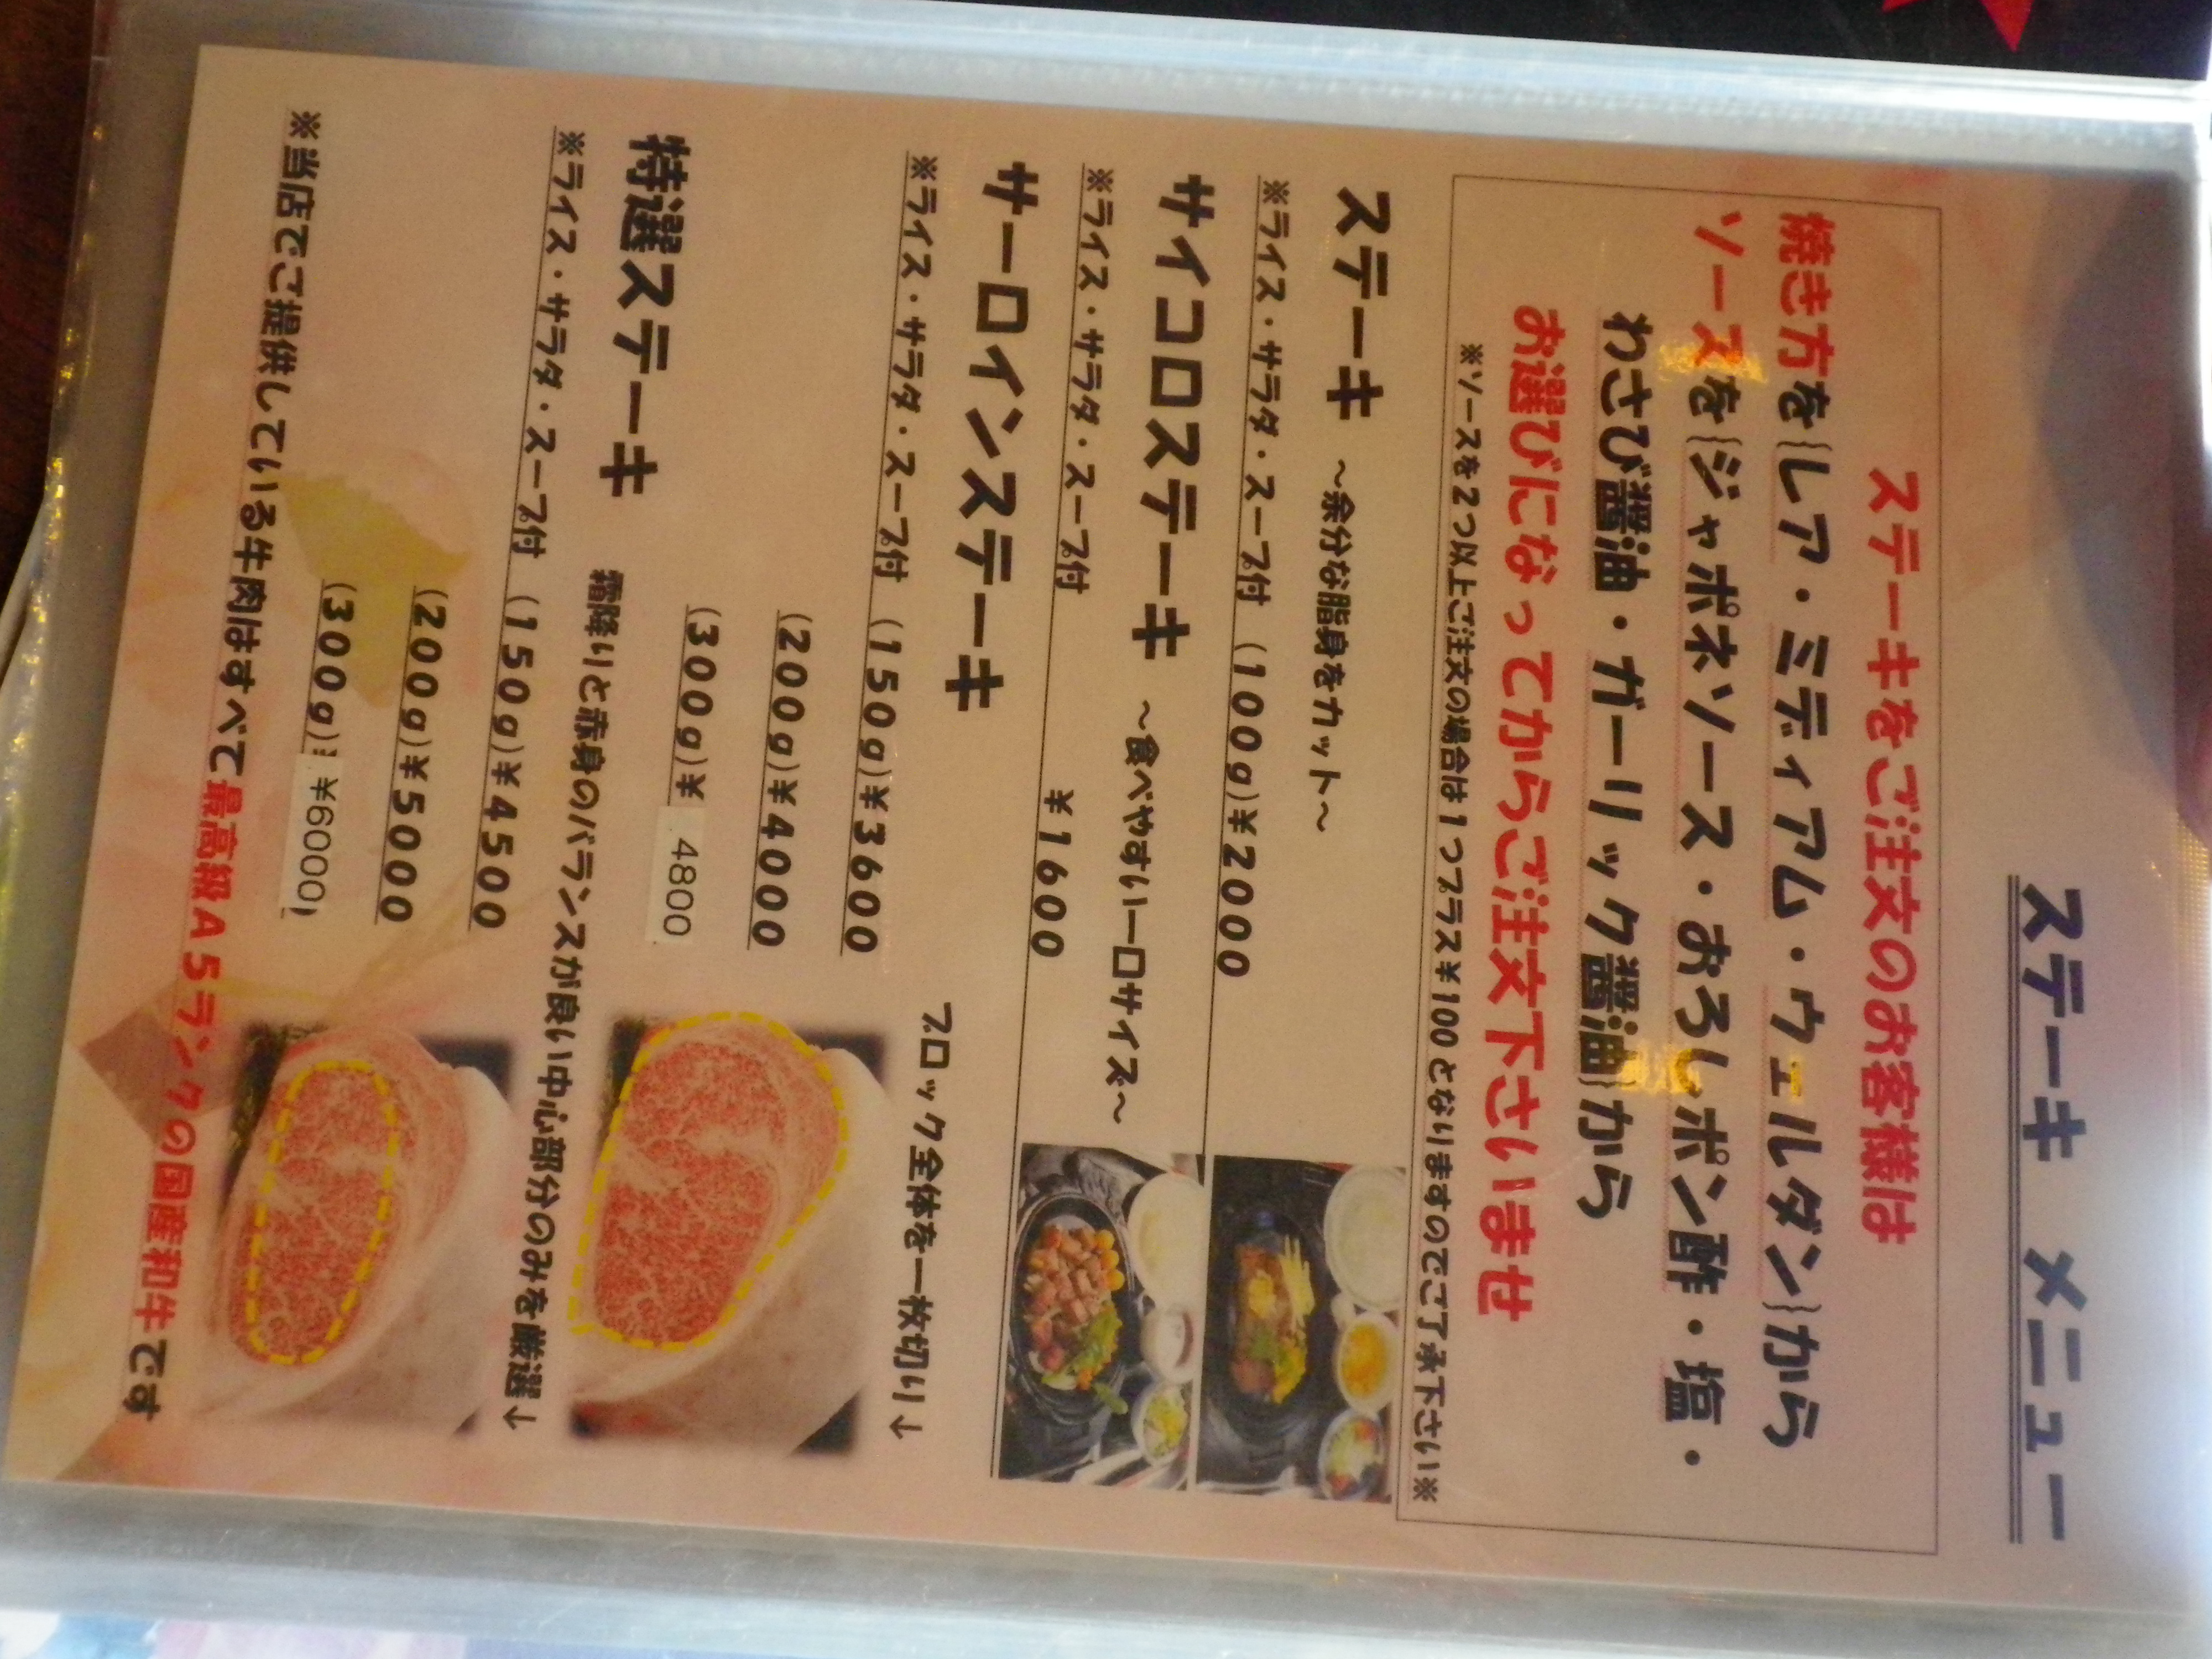 ステーキ メニュー
ステーキをご注文のお客様は
焼き方を{レア・ミディアム・ウェルダン}から
ソースを{ジャポネソース・おろしポン酢・塩・
わさび醤油・ガーリック醤油}から
お選びになってからご注文下さいませ
※ソースを2つ以上ご注文の場合は1つプラス¥100となりますのでご了承下さい※
ステーキ ～余分な脂身をカット～
※ライス・サラダ・スープ付 (100g)¥2000
サイコロステーキ ～食べやすい一口サイズ～
※ライス・サラダ・スープ付 ¥1600
サーロインステーキ ブロック全体を一枚切り↓
※ライス・サラダ・スープ付 (150g)¥3600
(200g)¥4000
(300g)¥ 4800
特選ステーキ 霜降りと赤身のバランスが良い中心部分のみを厳選↓
※ライス・サラダ・スープ付 (150g)¥4500
(200g)¥5000
(300g) ¥6000
※当店でご提供している牛肉はすべて最高級A5ランクの国産和牛です